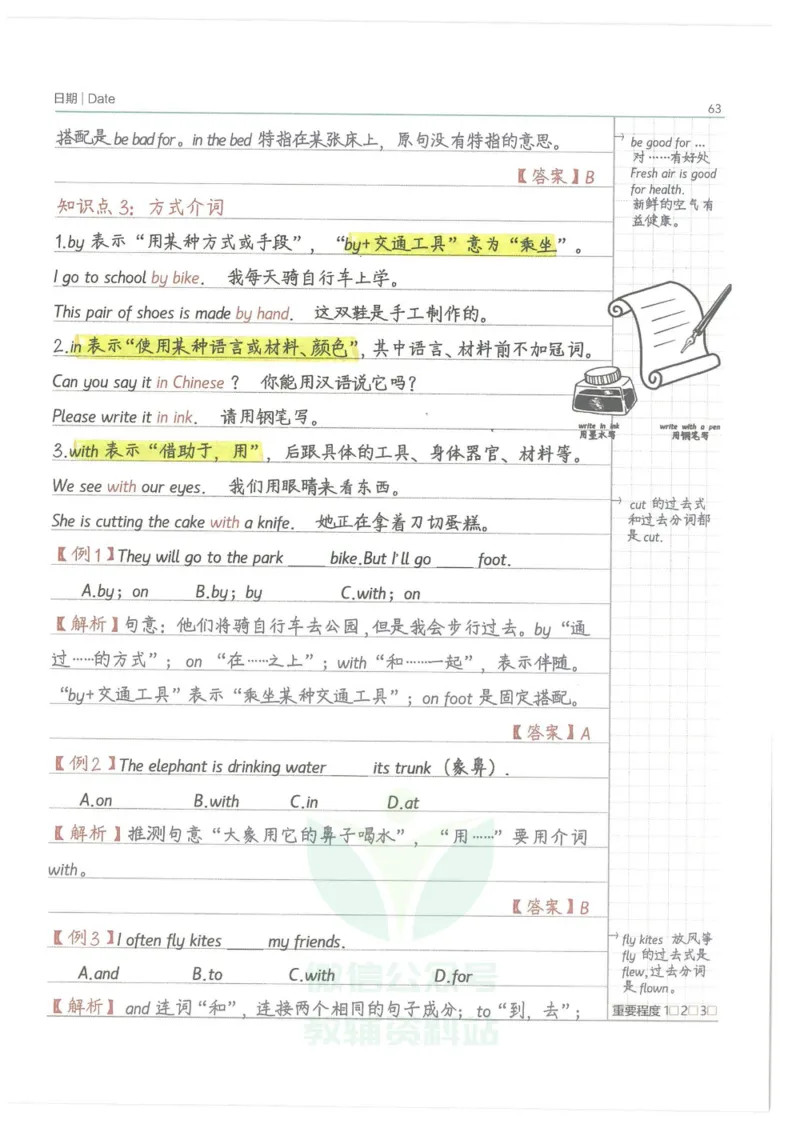 日期 | Date
63
搭配是 be bad for。in the bed 特指在某张床上，原句没有特指的意思。
【答案】B
知识点 3：方式介词
1.by 表示“用某种方式或手段”，“by+交通工具”意为“乘坐”。
I go to school by bike. 我每天骑自行车上学。
This pair of shoes is made by hand. 这双鞋是手工制作的。
2.in 表示“使用某种语言或材料、颜色”，其中语言、材料前不加冠词。
Can you say it in Chinese？ 你能用汉语说它吗？
Please write it in ink. 请用钢笔写。
3.with 表示“借助于，用”，后跟具体的工具、身体器官、材料等。
We see with our eyes. 我们用眼睛来看东西。
She is cutting the cake with a knife. 她正在拿着刀切蛋糕。
【例1】They will go to the park _____ bike.But I'll go _____ foot.
A.by；on B.by；by C.with；on
【解析】句意：他们将骑自行车去公园，但是我会步行过去。by“通
过……的方式”；on “在……之上”；with“和……一起”，表示伴随。
“by+交通工具”表示“乘坐某种交通工具”；on foot 是固定搭配。
【答案】A
【例2】The elephant is drinking water _____ its trunk（象鼻）.
A.on B.with C.in D.at
【解析】推测句意“大象用它的鼻子喝水”，“用……”要用介词
with。
【答案】B
【例3】I often fly kites _____ my friends.
A.and B.to C.with D.for
【解析】and 连词“和”，连接两个相同的句子成分；to“到，去”；
be good for ...
对……有好处
Fresh air is good
for health.
新鲜的空气有
益健康。
write in ink
用墨水写
write with a pen
用钢笔写
cut 的过去式
和过去分词都
是 cut.
fly kites 放风筝
fly 的过去式是
flew,过去分词
是 flown。
重要程度 1□ 2□ 3□
微信公众号
教辅资料站